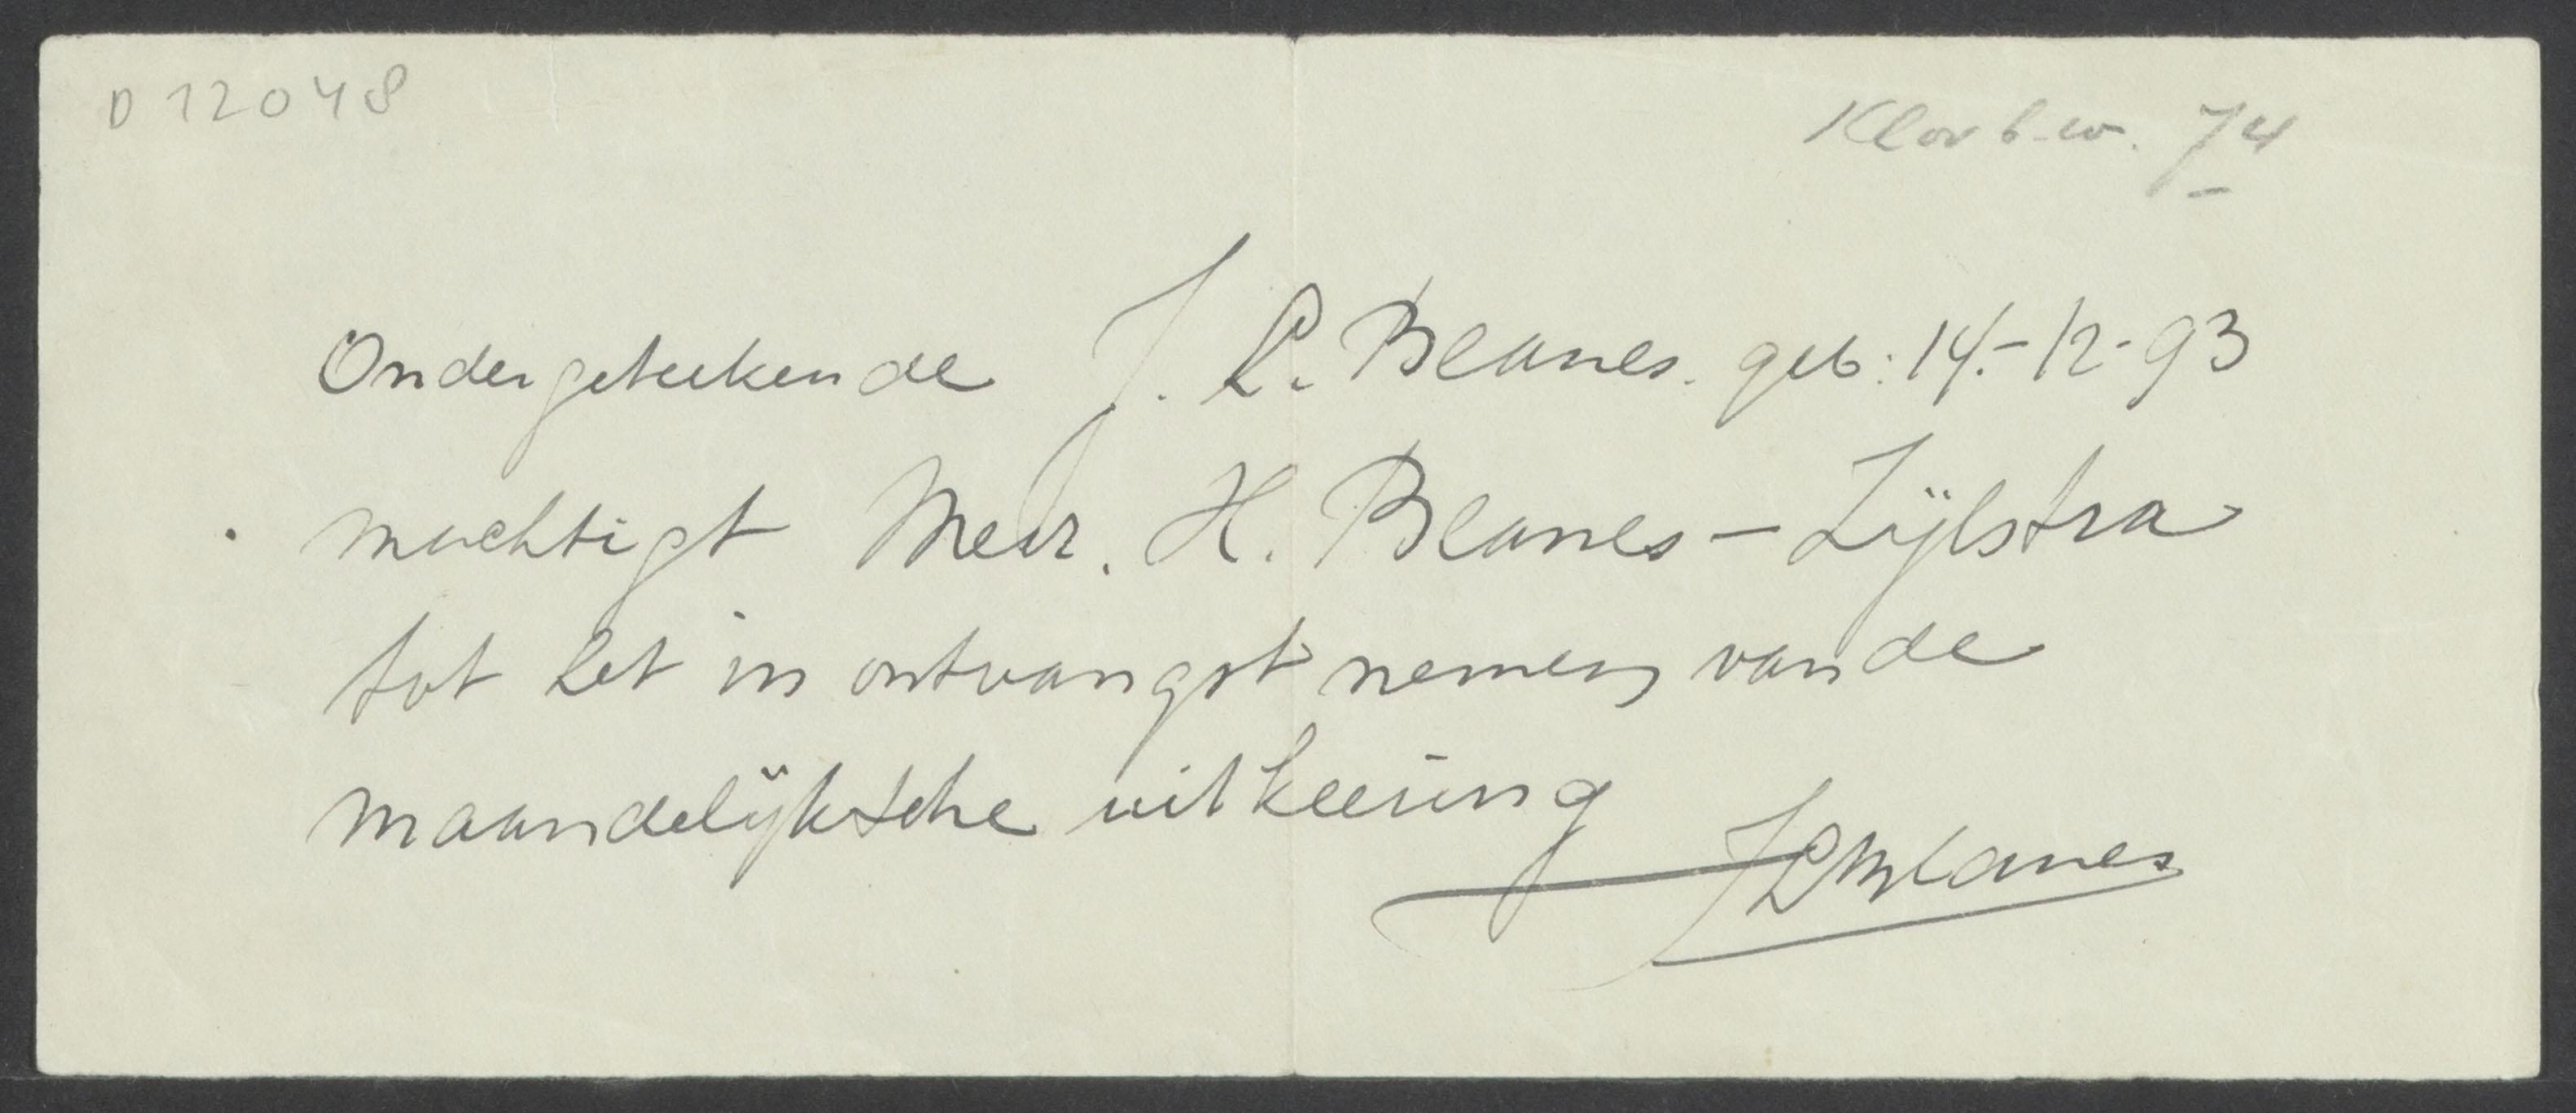 D 12048
Klov b.w. 74
Ondergeteekende J. L. Blanes. geb: 14-12-93
machtigt Mevr. H. Blanes-Zijlstra
tot het in ontvangst nemen van de
maandelijksche uitkeering
JLBlanes